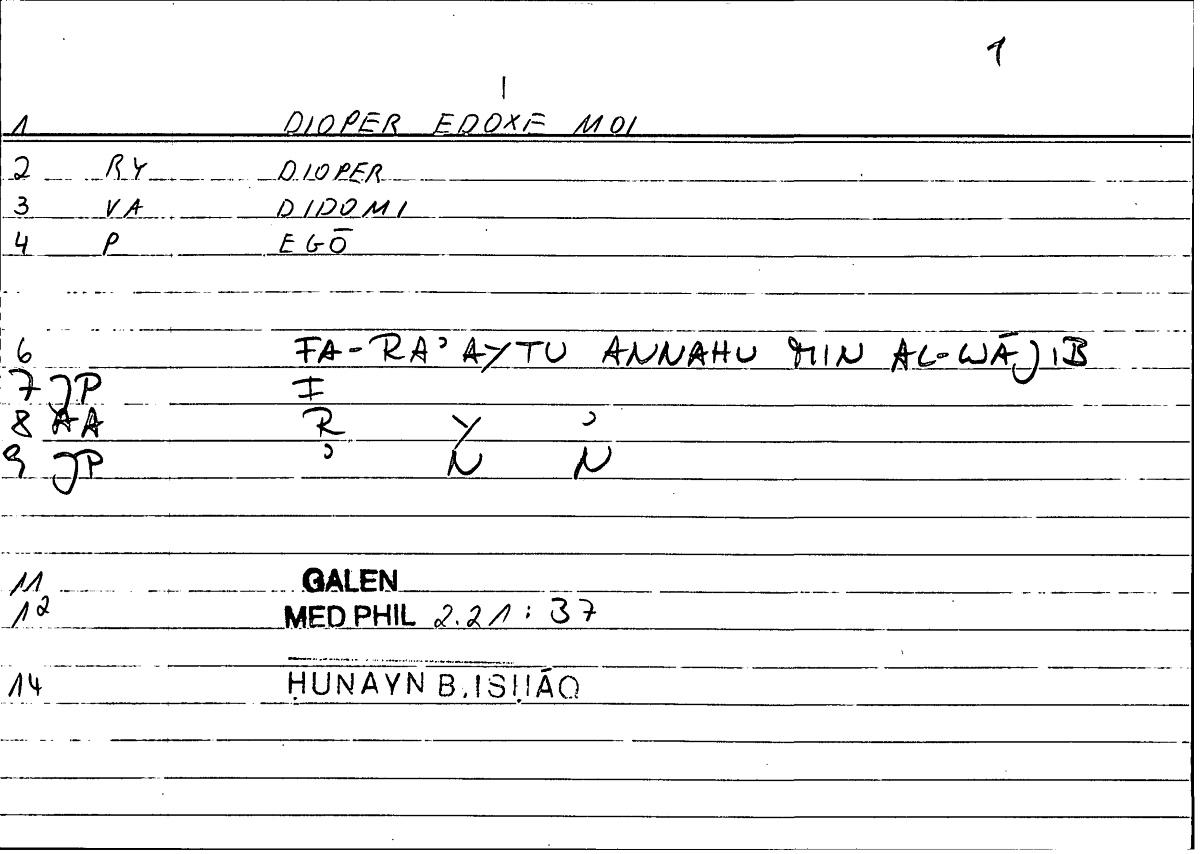 1
1 DIOPER EDOXE MOI
2 RY DIOPER
3 VA DIDOMI
4 P EGŌ
6 FA-RAʾAYTU ANNAHU MIN AL-WĀJIB
7 JP F
8 AA R Y ʾ
9 JP ʾ N N
11 GALEN
12 MED PHIL 2.21:37
14 ḤUNAYN B.ISḤĀQ